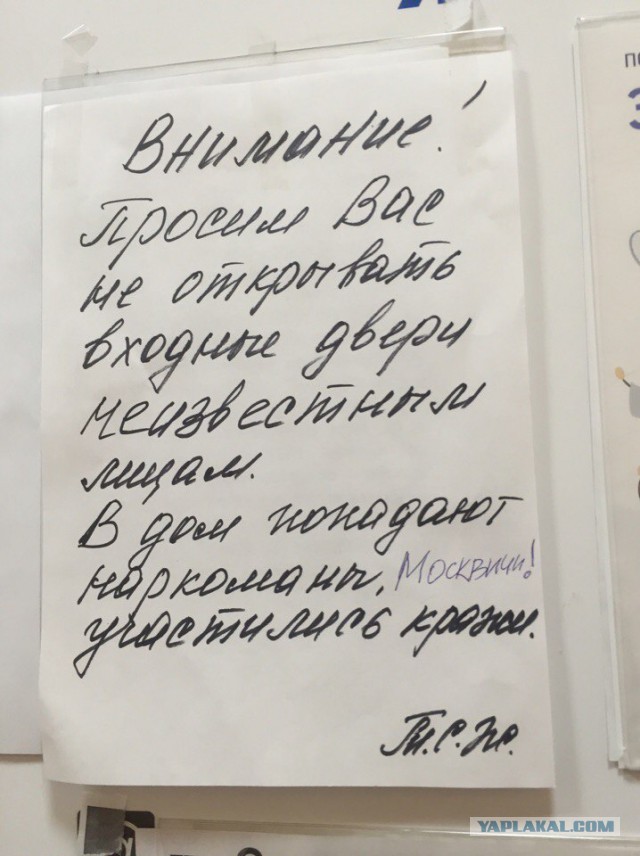 Внимание!
Просим Вас
не открывать
входные двери
неизвестным
лицам.
В дом попадают
наркоманы, Москвичи!
участились кражи.
Т.С.Ж.
YAPLAKAL.COM